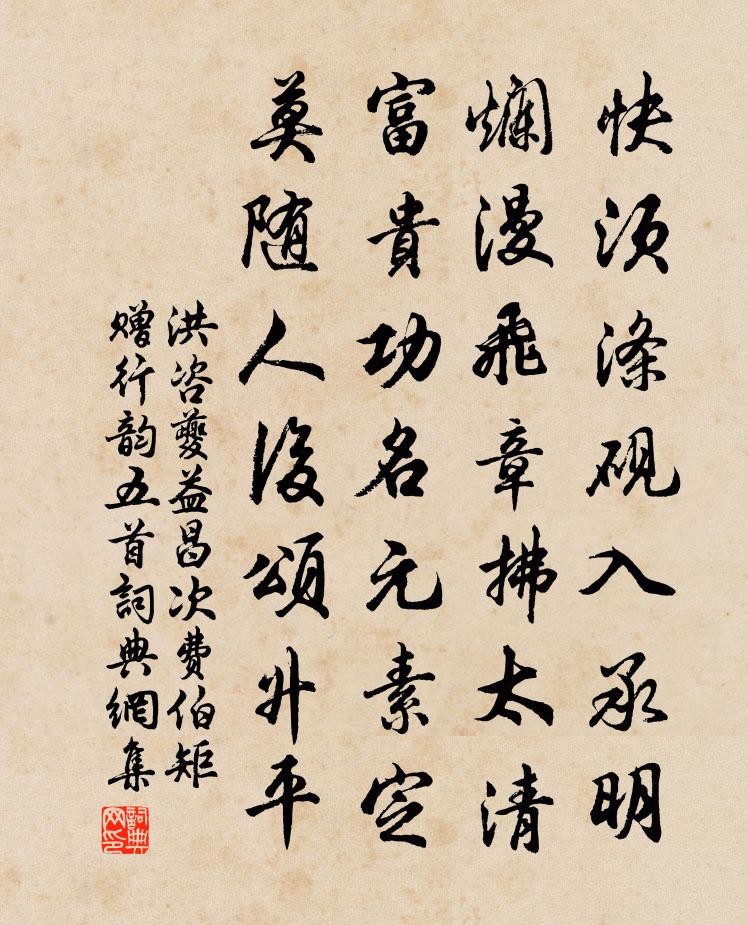 快須滌硯入承明
爛漫飛章拂太清
富貴功名元素定
莫随人後頌升平
洪咨夔益昌次費伯矩
贈行韵五首詞典網集
詞典网印